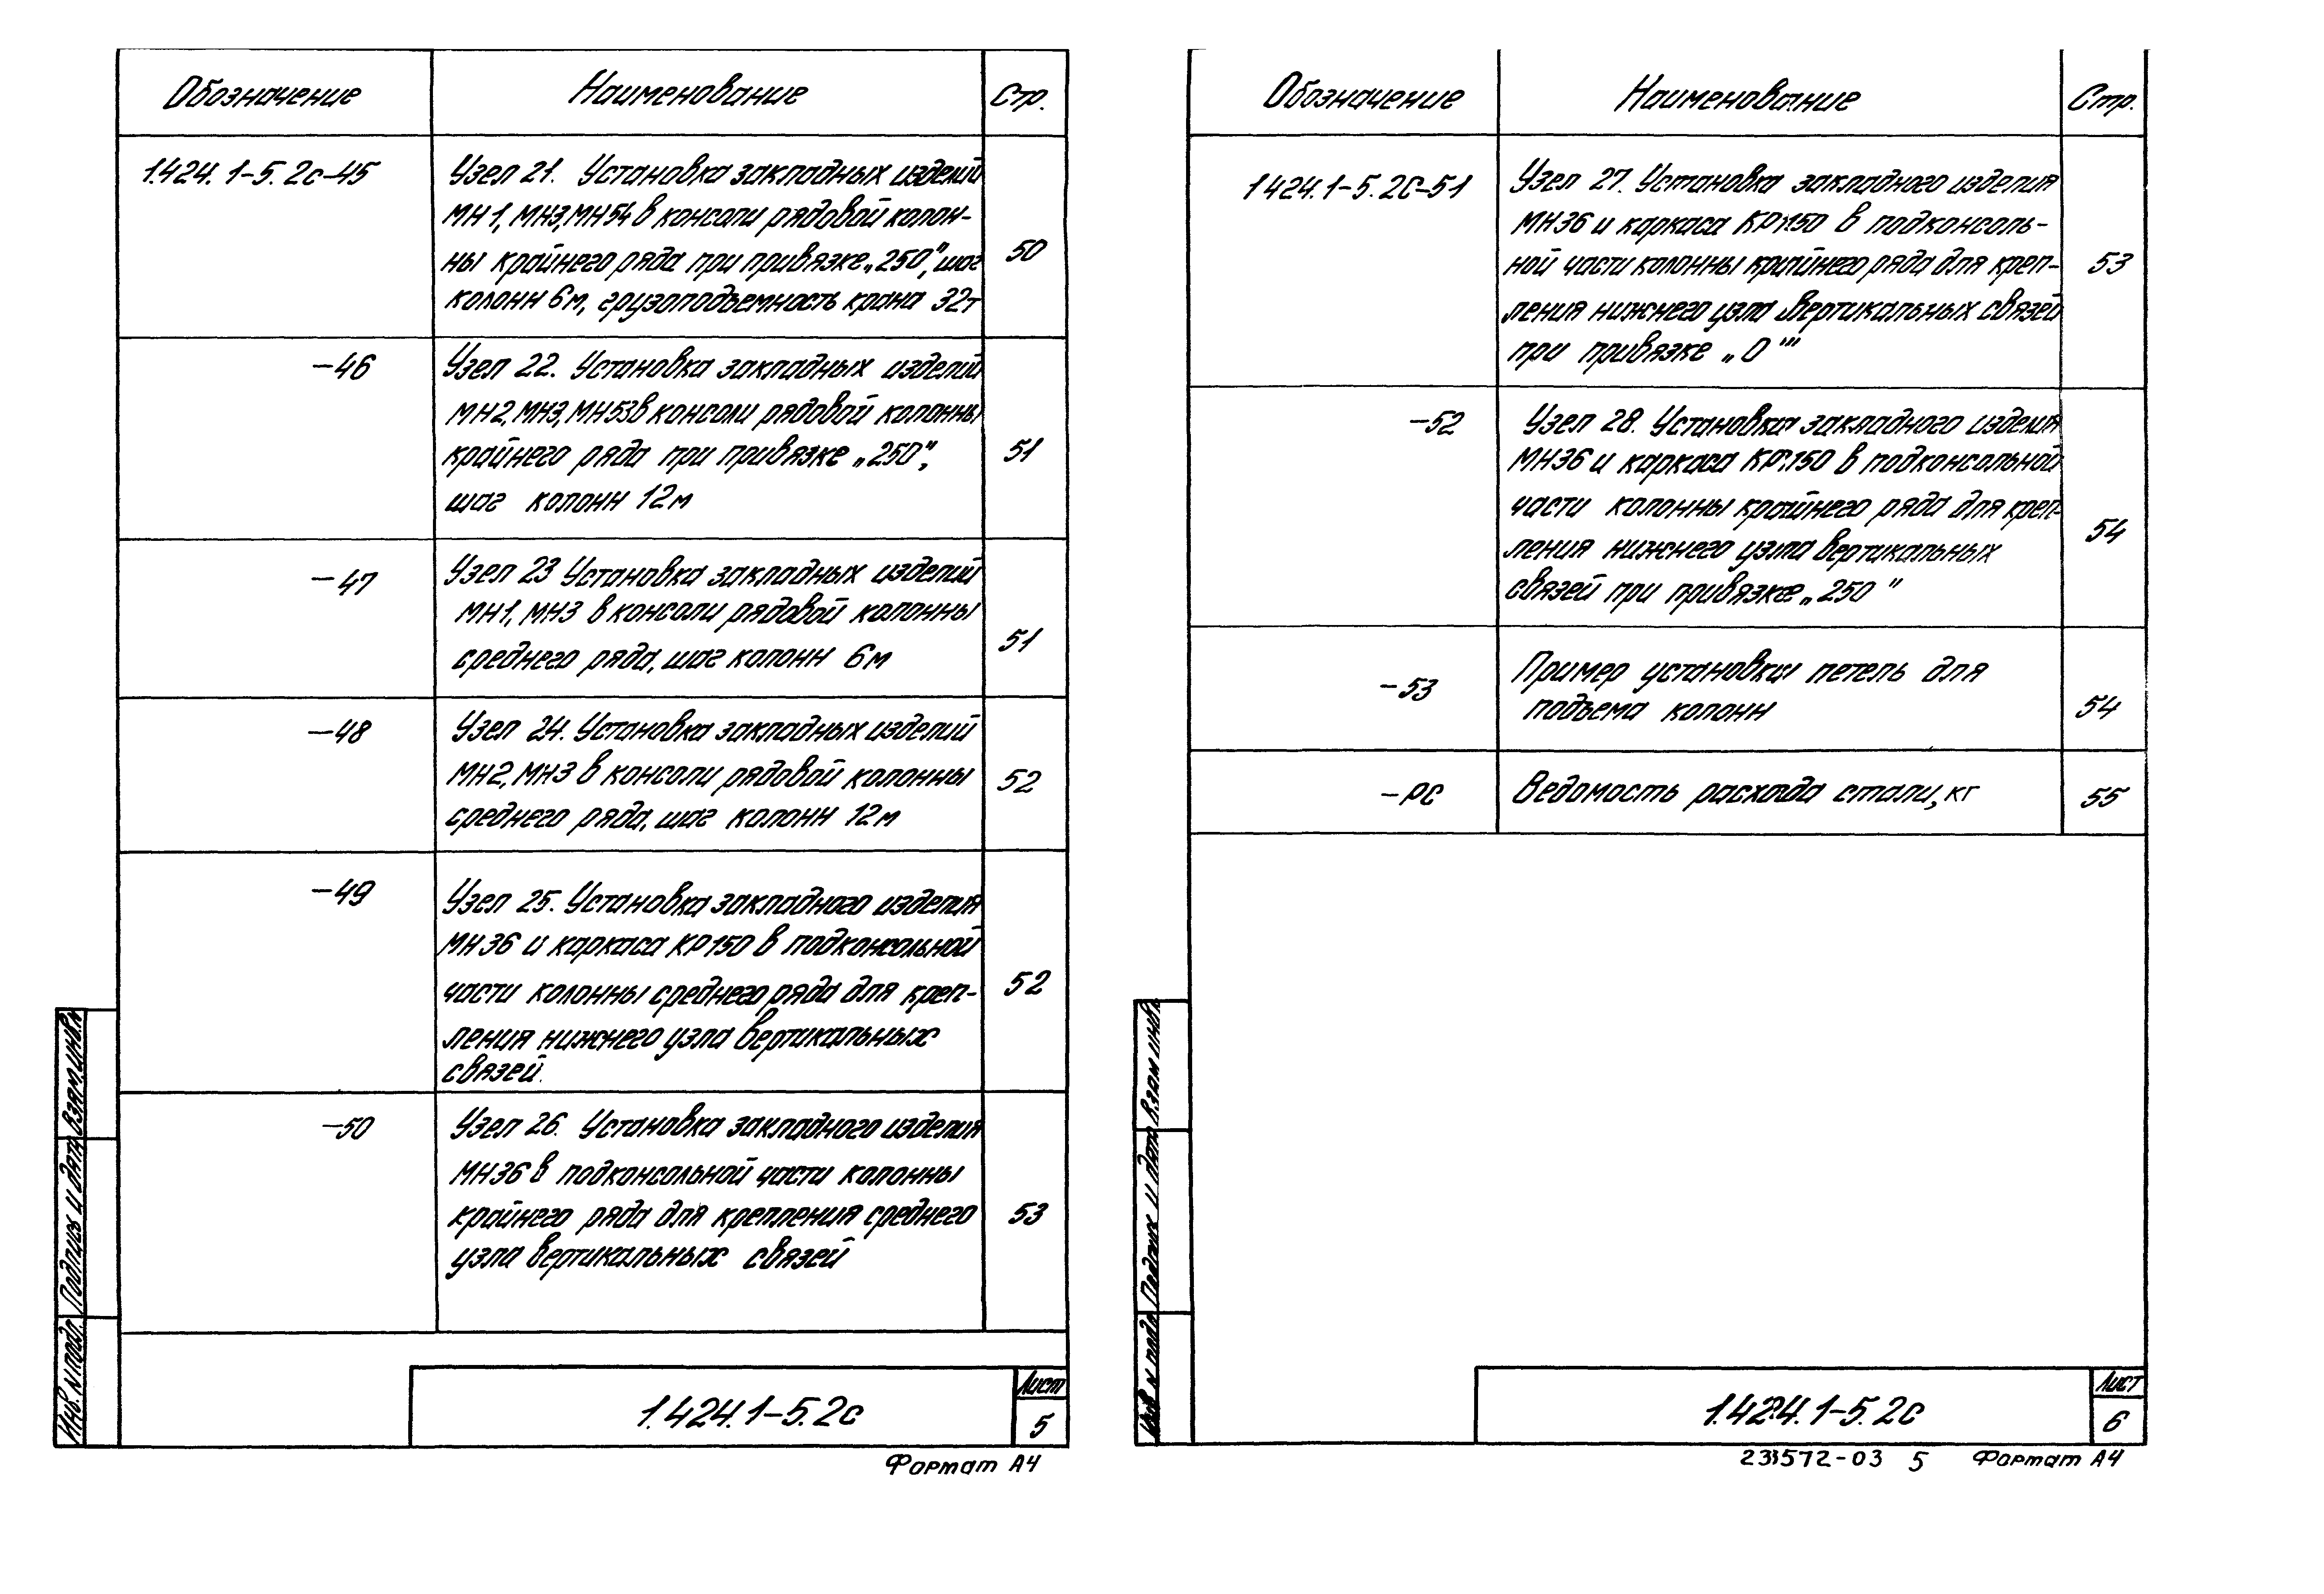 Обозначение Наименование Стр.
1.424.1-5.2с-45 Узел 21. Установка закладных изделий
МН1, МН3, МН54 в консоли рядовой колон-
ны крайнего ряда при привязке „250", шаг
колонн 6м, грузоподъемность крана 32т
50
-46 Узел 22. Установка закладных изделий
МН2, МН3, МН53 в консоли рядовой колонны
крайнего ряда при привязке „250",
шаг колонн 12м
51
-47 Узел 23 Установка закладных изделий
МН1, МН3 в консоли рядовой колонны
среднего ряда, шаг колонн 6м
51
-48 Узел 24. Установка закладных изделий
МН2, МН3 в консоли рядовой колонны
среднего ряда, шаг колонн 12м
52
-49 Узел 25. Установка закладного изделия
МН36 и каркаса КР150 в подконсольной
части колонны среднего ряда для креп-
ления нижнего узла вертикальных
связей.
52
-50 Узел 26. Установка закладного изделия
МН36 в подконсольной части колонны
крайнего ряда для крепления среднего
узла вертикальных связей
53
Инв. N подл. Подпись и дата Взам. инв. N
1.424.1-5.2с
Лист
5
Формат А4
Обозначение Наименование Стр.
1.424.1-5.2С-51 Узел 27. Установка закладного изделия
МН36 и каркаса КР150 в подконсоль-
ной части колонны крайнего ряда для креп-
ления нижнего узла вертикальных связей
при привязке „0"
53
-52 Узел 28. Установка закладного изделия
МН36 и каркаса КР150 в подконсольной
части колонны крайнего ряда для креп-
ления нижнего узла вертикальных
связей при привязке „250"
54
-53 Пример установки петель для
подъема колонн
54
-РС Ведомость расхода стали, кг
55
Инв N подл Подпись и дата Взам инв.
1.424.1-5.2с
Лист
6
23572-03 5 Формат А4